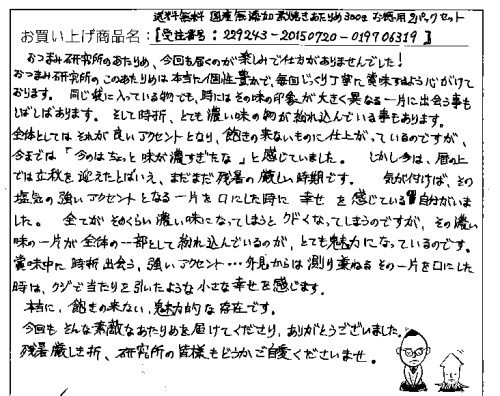 送料無料 国産無添加素焼きあたりめ300g お徳用2パックセット
お買い上げ商品名:[受注番号:229243-20150720-019706319]
おつまみ研究所のあたりめ、今回も届くのが楽しみで仕方がありませんでした!
おつまみ研究所のこのあたりめは本当に個性豊かで、毎回じっくり丁寧に賞味するよう心がけて
おります。同じ袋に入っている物でも、時にはその味の印象が大きく異なる一片に出会う事も
しばしばあります。そして時折、とても濃い味の物が紛れ込んでいる事もあります。
全体としてはそれが良いアクセントとなり、飽きの来ないものに仕上がっているのですが、
今までは「今のはちょっと味が濃すぎたな」と感じていました。しかし今は、暦の上
では立秋を迎えたとはいえ、まだまだ残暑の厳しい時期です。気が付けば、その
塩気の強いアクセントとなる一片を口にした時に幸せを感じている自分がいま
した。全てがそのくらい濃い味になってしまうとクドくなってしまうのですが、その濃い
味の一片が全体の一部として紛れ込んでいるのが、とても魅力になっているのです。
賞味中に時折出会う、強いアクセント…外見からは測り兼ねるその一片を口にした
時は、クジで当たりを引いたような小さな幸せを感じます。
本当に、飽きの来ない、魅力的な存在です。
今回もそんな素敵なあたりめを届けてくださり、ありがとうございました。
残暑厳しき折、研究所の皆様もどうかご自愛くださいませ。